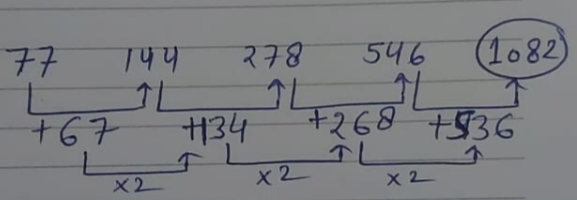 77 144 278 546 1082
+67 +134 +268 +536
x2 x2 x2